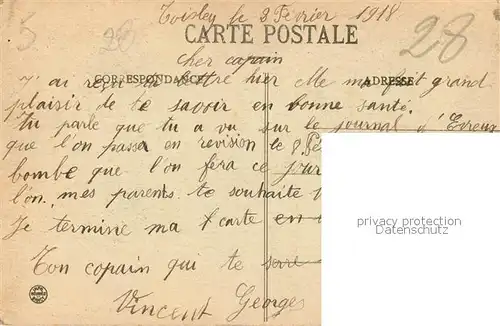 Toisley le 2 Février 1918
28
CARTE POSTALE
28
cher copain
CORRESPONDANCE
ADRESSE
J'ai reçu ta lettre hier Me ma fait grand
plaisir de te savoir en bonne santé.
Tu parle que tu a vu sur le journal d'Evreux
que l'on passa en revision le 8 Fé
bombe que l'on fera ce jour
l'on. mes parents te souhaite
Je termine ma carte en
privacy protection
Ton copain qui te serre
Vincent Georges